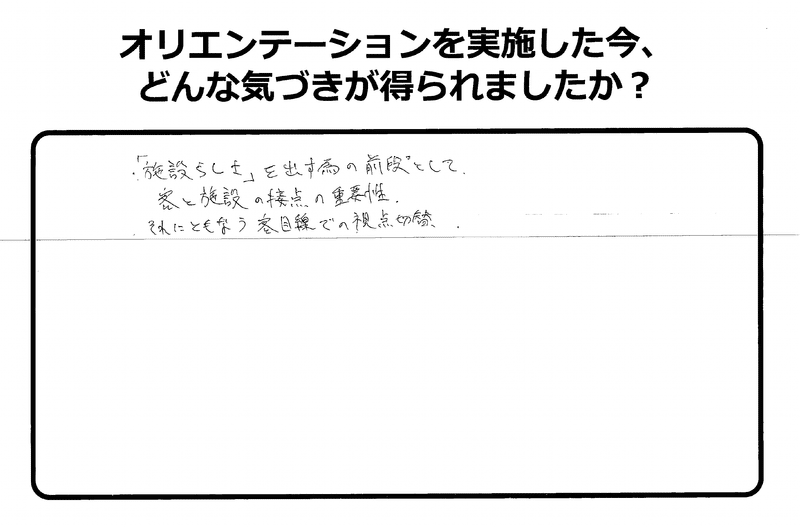 オリエンテーションを実施した今、
どんな気づきが得られましたか？
・「施設らしさ」を出す為の前段として、
客と施設の接点の重要性、
それにともなう客目線での視点切替、